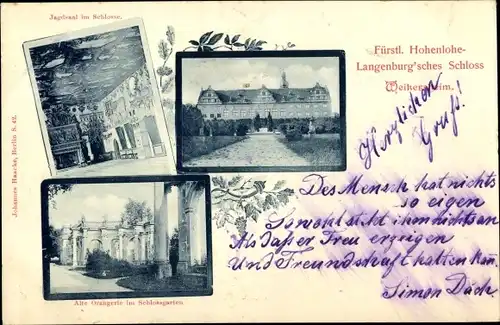 Jagdsaal im Schlosse.
Fürstl. Hohenlohe-
Langenburg'sches Schloss
Weikersheim.
Herzlichen
Gruß!
Des Mensch hat nichts
so eigen
So wohl steht ihm nichts an
Als daß er Treu erzeigen
Und Freundschaft halten kan.
Simon Dach
Alte Orangerie im Schlossgarten
Johannes Haacke, Berlin S. 42.